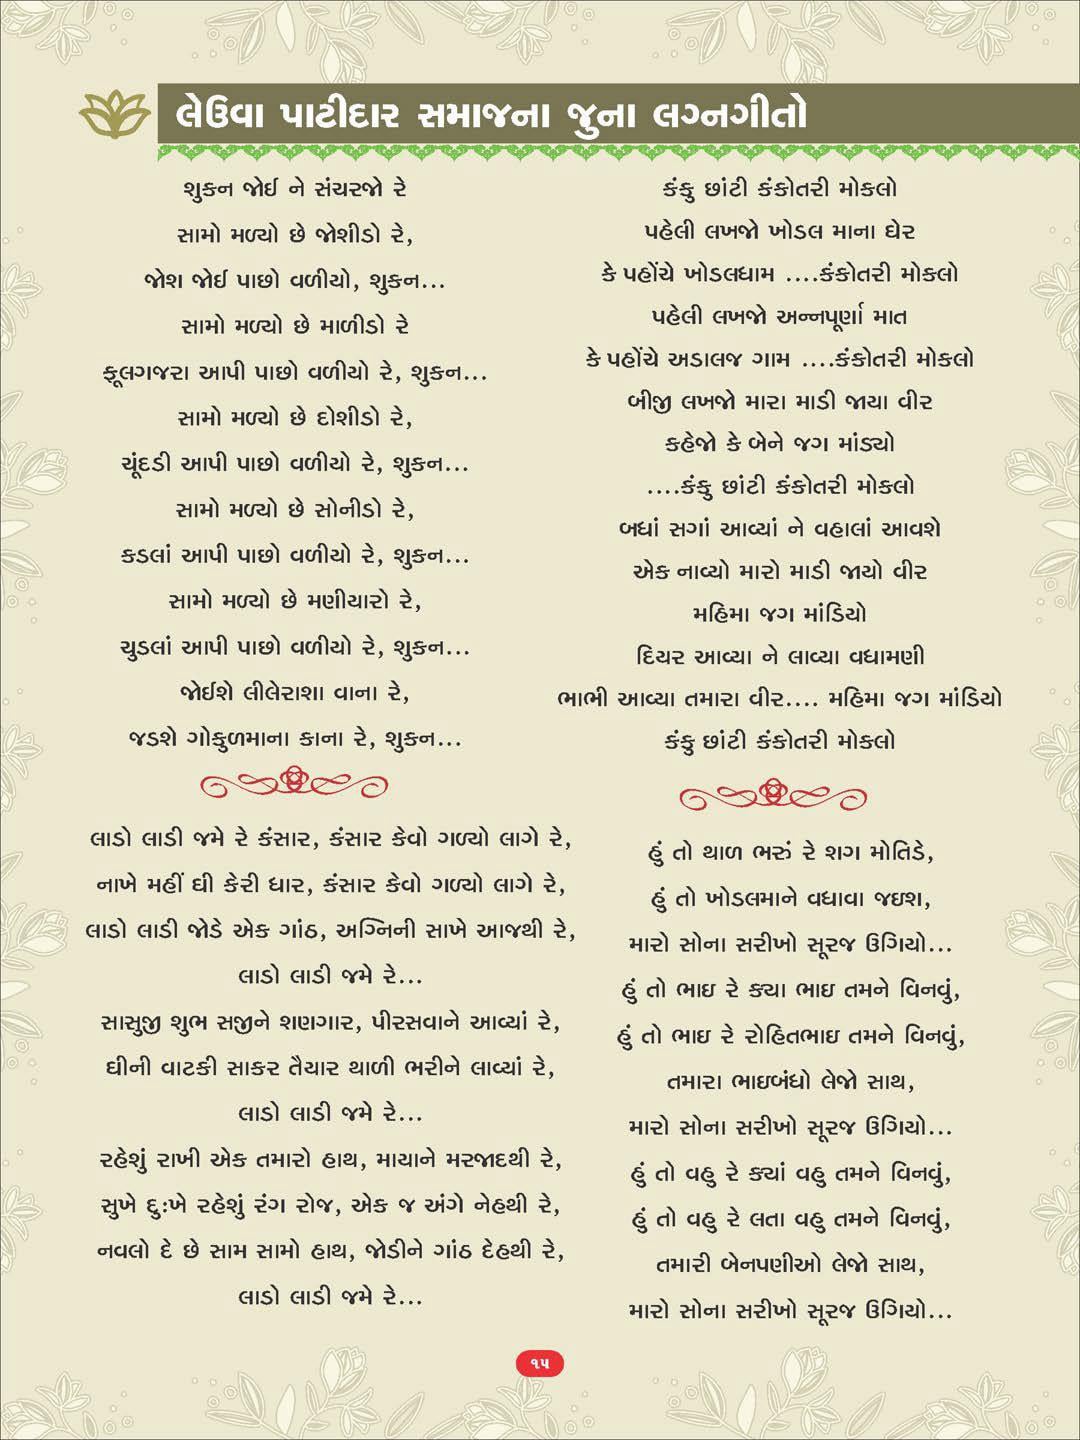 લેઉવા પાટીદાર સમાજના જુના લગ્નગીતો
શુકન જોઈ ને સંચરજો રે
સામો મળ્યો છે જોશીડો રે,
જોશ જોઈ પાછો વળીયો, શુકન...
સામો મળ્યો છે માળીડો રે
ફૂલગજરા આપી પાછો વળીયો રે, શુકન...
સામો મળ્યો છે દોશીડો રે,
ચૂંદડી આપી પાછો વળીયો રે, શુકન...
સામો મળ્યો છે સોનીડો રે,
કડલાં આપી પાછો વળીયો રે, શુકન...
સામો મળ્યો છે મણીયારો રે,
ચુડલાં આપી પાછો વળીયો રે, શુકન...
જોઈશે લીલેરાશા વાના રે,
જડશે ગોકુળમાના કાના રે, શુકન...
લાડો લાડી જમે રે કંસાર, કંસાર કેવો ગળ્યો લાગે રે,
નાખે મહીં ઘી કેરી ધાર, કંસાર કેવો ગળ્યો લાગે રે,
લાડો લાડી જોડે એક ગાંઠ, અગ્નિની સાખે આજથી રે,
લાડો લાડી જમે રે...
સાસુજી શુભ સજીને શણગાર, પીરસવાને આવ્યાં રે,
ઘીની વાટકી સાકર તૈયાર થાળી ભરીને લાવ્યાં રે,
લાડો લાડી જમે રે...
રહેશું રાખી એક તમારો હાથ, માયાને મરજાદથી રે,
સુખે દુઃખે રહેશું રંગ રોજ, એક જ અંગે નેહથી રે,
નવલો દે છે સામ સામો હાથ, જોડીને ગાંઠ દેહથી રે,
લાડો લાડી જમે રે...
કંકુ છાંટી કંકોતરી મોકલો
પહેલી લખજો ખોડલ માના ઘેર
કે પહોંચે ખોડલધામ ....કંકોતરી મોકલો
પહેલી લખજો અન્નપૂર્ણા માત
કે પહોંચે અડાલજ ગામ ....કંકોતરી મોકલો
બીજી લખજો મારા માડી જાયા વીર
કહેજો કે બેને જગ માંડ્યો
....કંકુ છાંટી કંકોતરી મોકલો
બધાં સગાં આવ્યાં ને વહાલાં આવશે
એક નાવ્યો મારો માડી જાયો વીર
મહિમા જગ માંડિયો
દિયર આવ્યા ને લાવ્યા વધામણી
ભાભી આવ્યા તમારા વીર.... મહિમા જગ માંડિયો
કંકુ છાંટી કંકોતરી મોકલો
હું તો થાળ ભરું રે શગ મોતિડે,
હું તો ખોડલમાને વધાવા જઇશ,
મારો સોના સરીખો સૂરજ ઉગિયો...
હું તો ભાઇ રે ક્યા ભાઇ તમને વિનવું,
હું તો ભાઇ રે રોહિતભાઇ તમને વિનવું,
તમારા ભાઇબંધો લેજો સાથ,
મારો સોના સરીખો સૂરજ ઉગિયો...
હું તો વહુ રે ક્યાં વહુ તમને વિનવું,
હું તો વહુ રે લતા વહુ તમને વિનવું,
તમારી બેનપણીઓ લેજો સાથ,
મારો સોના સરીખો સૂરજ ઉગિયો...
૧૫